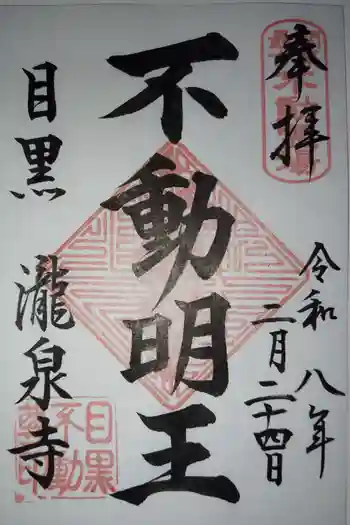 奉拝
令和八年
二月二十四日
不動明王
目黒
瀧泉寺
目黒
不動